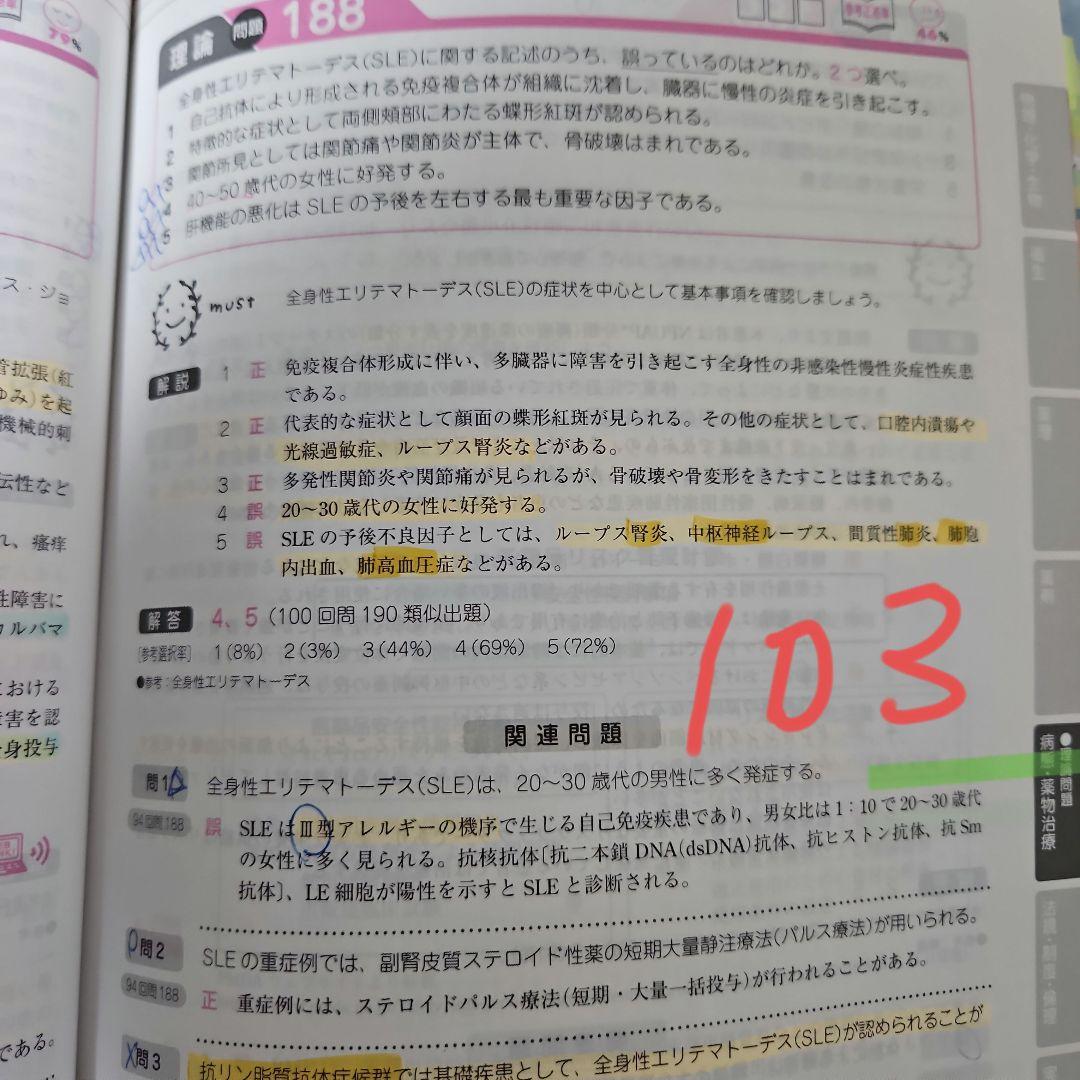 79%
理論 問題 188
参考正答率
46%
全身性エリテマトーデス(SLE)に関する記述のうち、誤っているのはどれか。2つ選べ。
1 自己抗体により形成される免疫複合体が組織に沈着し、臓器に慢性の炎症を引き起こす。
2 特徴的な症状として両側頬部にわたる蝶形紅斑が認められる。
3 関節所見としては関節痛や関節炎が主体で、骨破壊はまれである。
4 40〜50歳代の女性に好発する。
5 肝機能の悪化はSLEの予後を左右する最も重要な因子である。
must 全身性エリテマトーデス(SLE)の症状を中心として基本事項を確認しましょう。
解説 1 正 免疫複合体形成に伴い、多臓器に障害を引き起こす全身性の非感染性慢性炎症性疾患
である。
2 正 代表的な症状として顔面の蝶形紅斑が見られる。その他の症状として、口腔内潰瘍や
光線過敏症、ループス腎炎などがある。
3 正 多発性関節炎や関節痛が見られるが、骨破壊や骨変形をきたすことはまれである。
4 誤 20〜30歳代の女性に好発する。
5 誤 SLEの予後不良因子としては、ループス腎炎、中枢神経ループス、間質性肺炎、肺胞
内出血、肺高血圧症などがある。
解答 4、5(100回問190類似出題)
[参考選択率] 1(8%) 2(3%) 3(44%) 4(69%) 5(72%)
●参考:全身性エリテマトーデス
103
関連問題
問1 全身性エリテマトーデス(SLE)は、20〜30歳代の男性に多く発症する。
94回問188 誤 SLEはⅢ型アレルギーの機序で生じる自己免疫疾患であり、男女比は1:10で20〜30歳代
の女性に多く見られる。抗核抗体〔抗二本鎖DNA(dsDNA)抗体、抗ヒストン抗体、抗Sm
抗体〕、LE細胞が陽性を示すとSLEと診断される。
問2 SLEの重症例では、副腎皮質ステロイド性薬の短期大量静注療法(パルス療法)が用いられる。
94回問188 正 重症例には、ステロイドパルス療法(短期・大量一括投与)が行われることがある。
問3 抗リン脂質抗体症候群では基礎疾患として、全身性エリテマトーデス(SLE)が認められることが
ス・ジョ
管拡張(紅
ゆみ)を起
機械的刺
伝性など
れ、瘙痒
性障害に
カルバマ
における
障害を認
全身投与
である。
物理・化学・生物
衛生
薬理
薬剤
●理論問題
病態・薬物治療
法規・制度・倫理
実